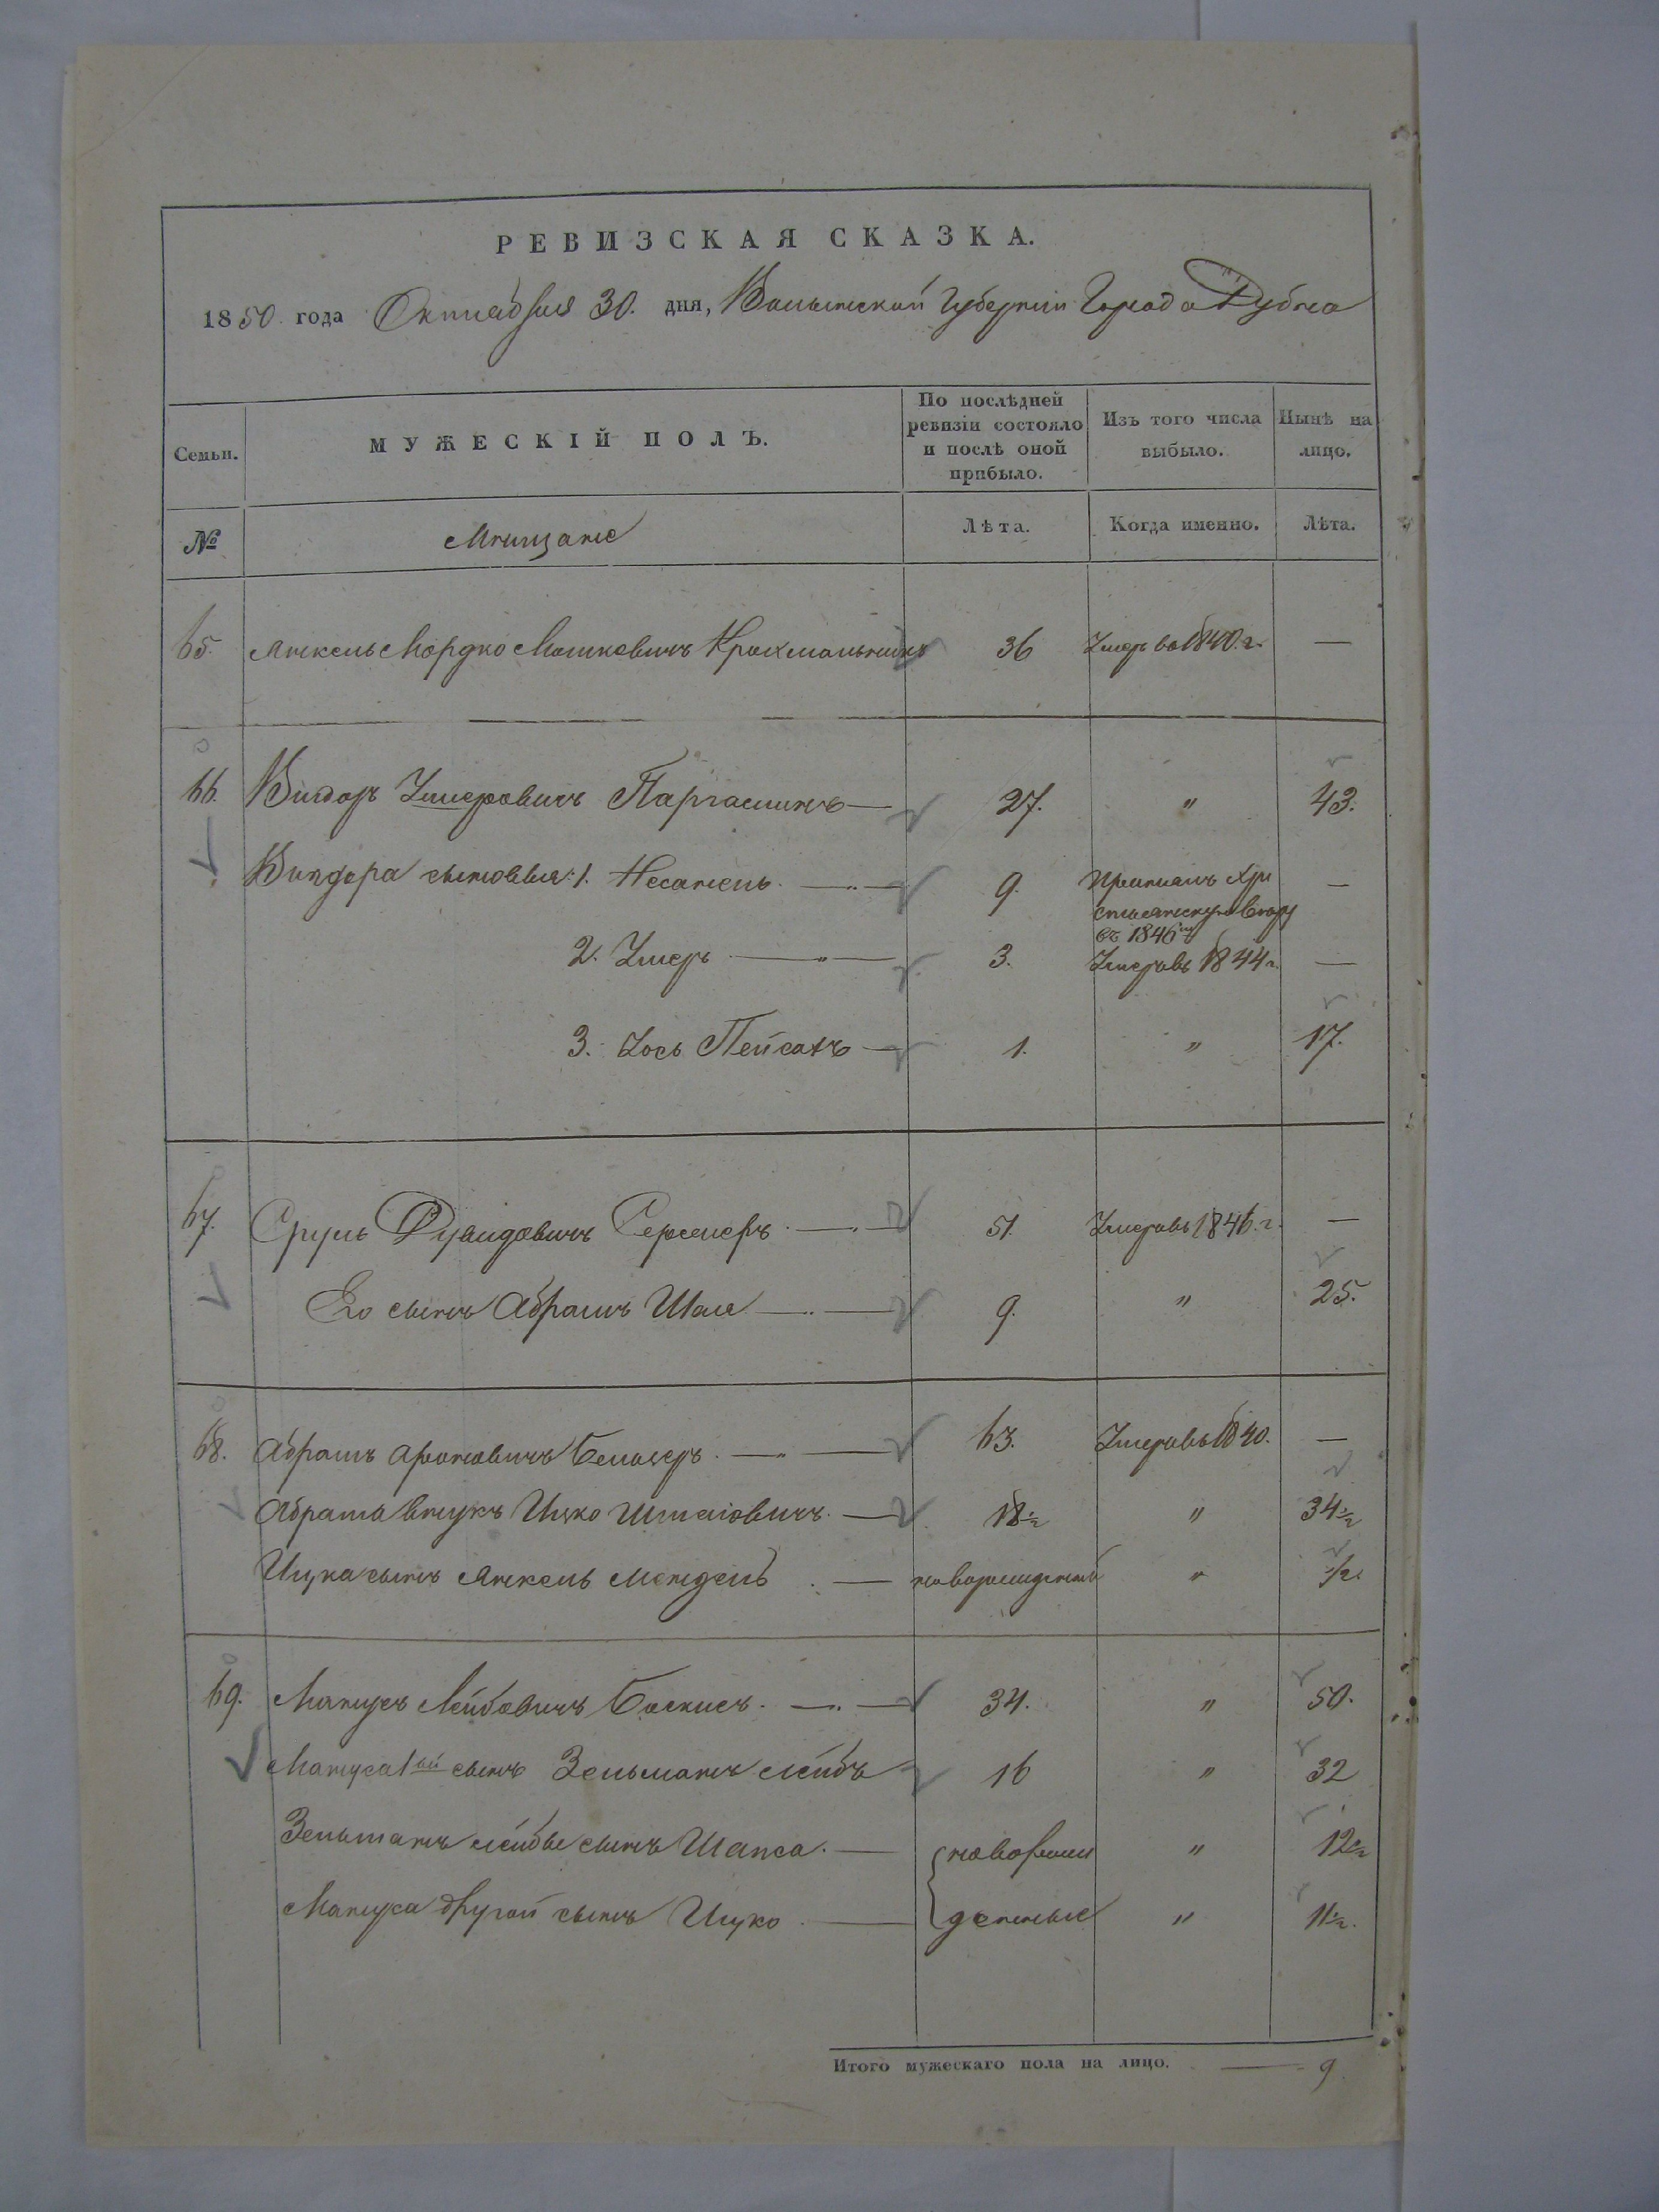 РЕВИЗСКАЯ СКАЗКА.
1850 года Октября 30. дня, Волынской Губернии Города Дубна
Семьи.
МУЖЕСКІЙ ПОЛЪ.
По послѣдней
ревизіи состояло
и послѣ оной
прибыло.
Изъ того числа
выбыло.
Нынѣ на
лицо.
№
Мѣщане
Лѣта.
Когда именно.
Лѣта.
65. Янкель Мордко Мошковичъ 36 Умеръ въ 1840. г. —
66. Умеровичъ 27. " 43.
сыновья: 1. 9. —
съ 1846
2. Умеръ — " — 3. Умеръ въ 1844 г. —
3. Іось Пейсахъ — 1. " 17.
67. Сруль Дувидовичъ — " — 51. Умеръ въ 1846. г. —
Его сынъ Абрамъ Шая — " — 9. " 25.
68. Абрамъ Ароновичъ — " — 63. Умеръ въ 1840. —
Абрама внукъ Ицко — 18½ " 34½
Ицка сынъ Янкель Мендель — новорожденный " ½
69. Манусъ Лейбовичъ — " — 34. " 50.
Мануса 1ый сынъ Зельманъ Лейбъ 16 " 32
Зельманъ Лейбы сынъ Шапса — новорож " 12½
Мануса другой сынъ Ицко — денные " 11½.
Итого мужескаго пола на лицо. — 9